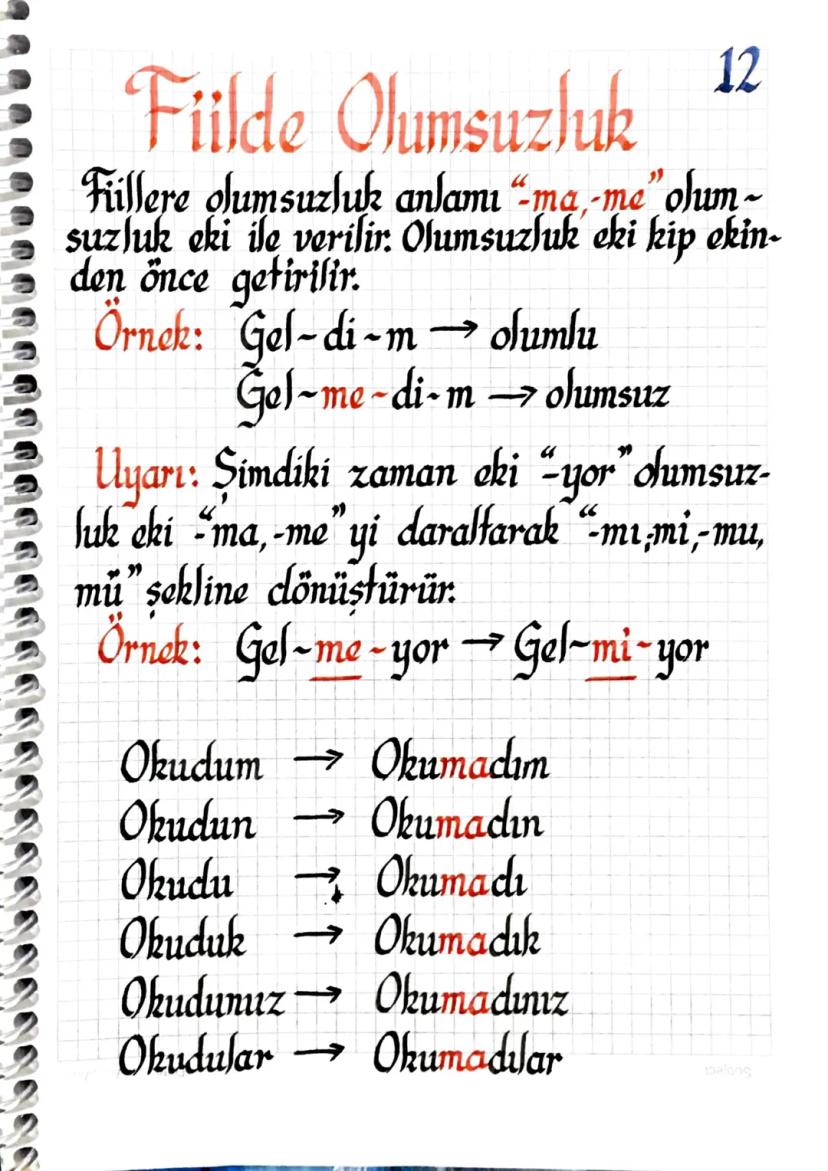 12
Fiilde Olumsuzluk
Fiillere olumsuzluk anlamı “-ma,-me” olum-
suzluk eki ile verilir. Olumsuzluk eki kip ekin-
den önce getirilir.
Örnek: Gel-di-m → olumlu
Gel-me-di-m → olumsuz
Uyarı: Şimdiki zaman eki “-yor” olumsuz-
luk eki “-ma,-me”yi daraltarak “-mı,-mi,-mu,
mü” şekline dönüştürür.
Örnek: Gel-me-yor → Gel-mi-yor
Okudum → Okumadım
Okudun → Okumadın
Okudu → Okumadı
Okuduk → Okumadık
Okudunuz → Okumadınız
Okudular → Okumadılar